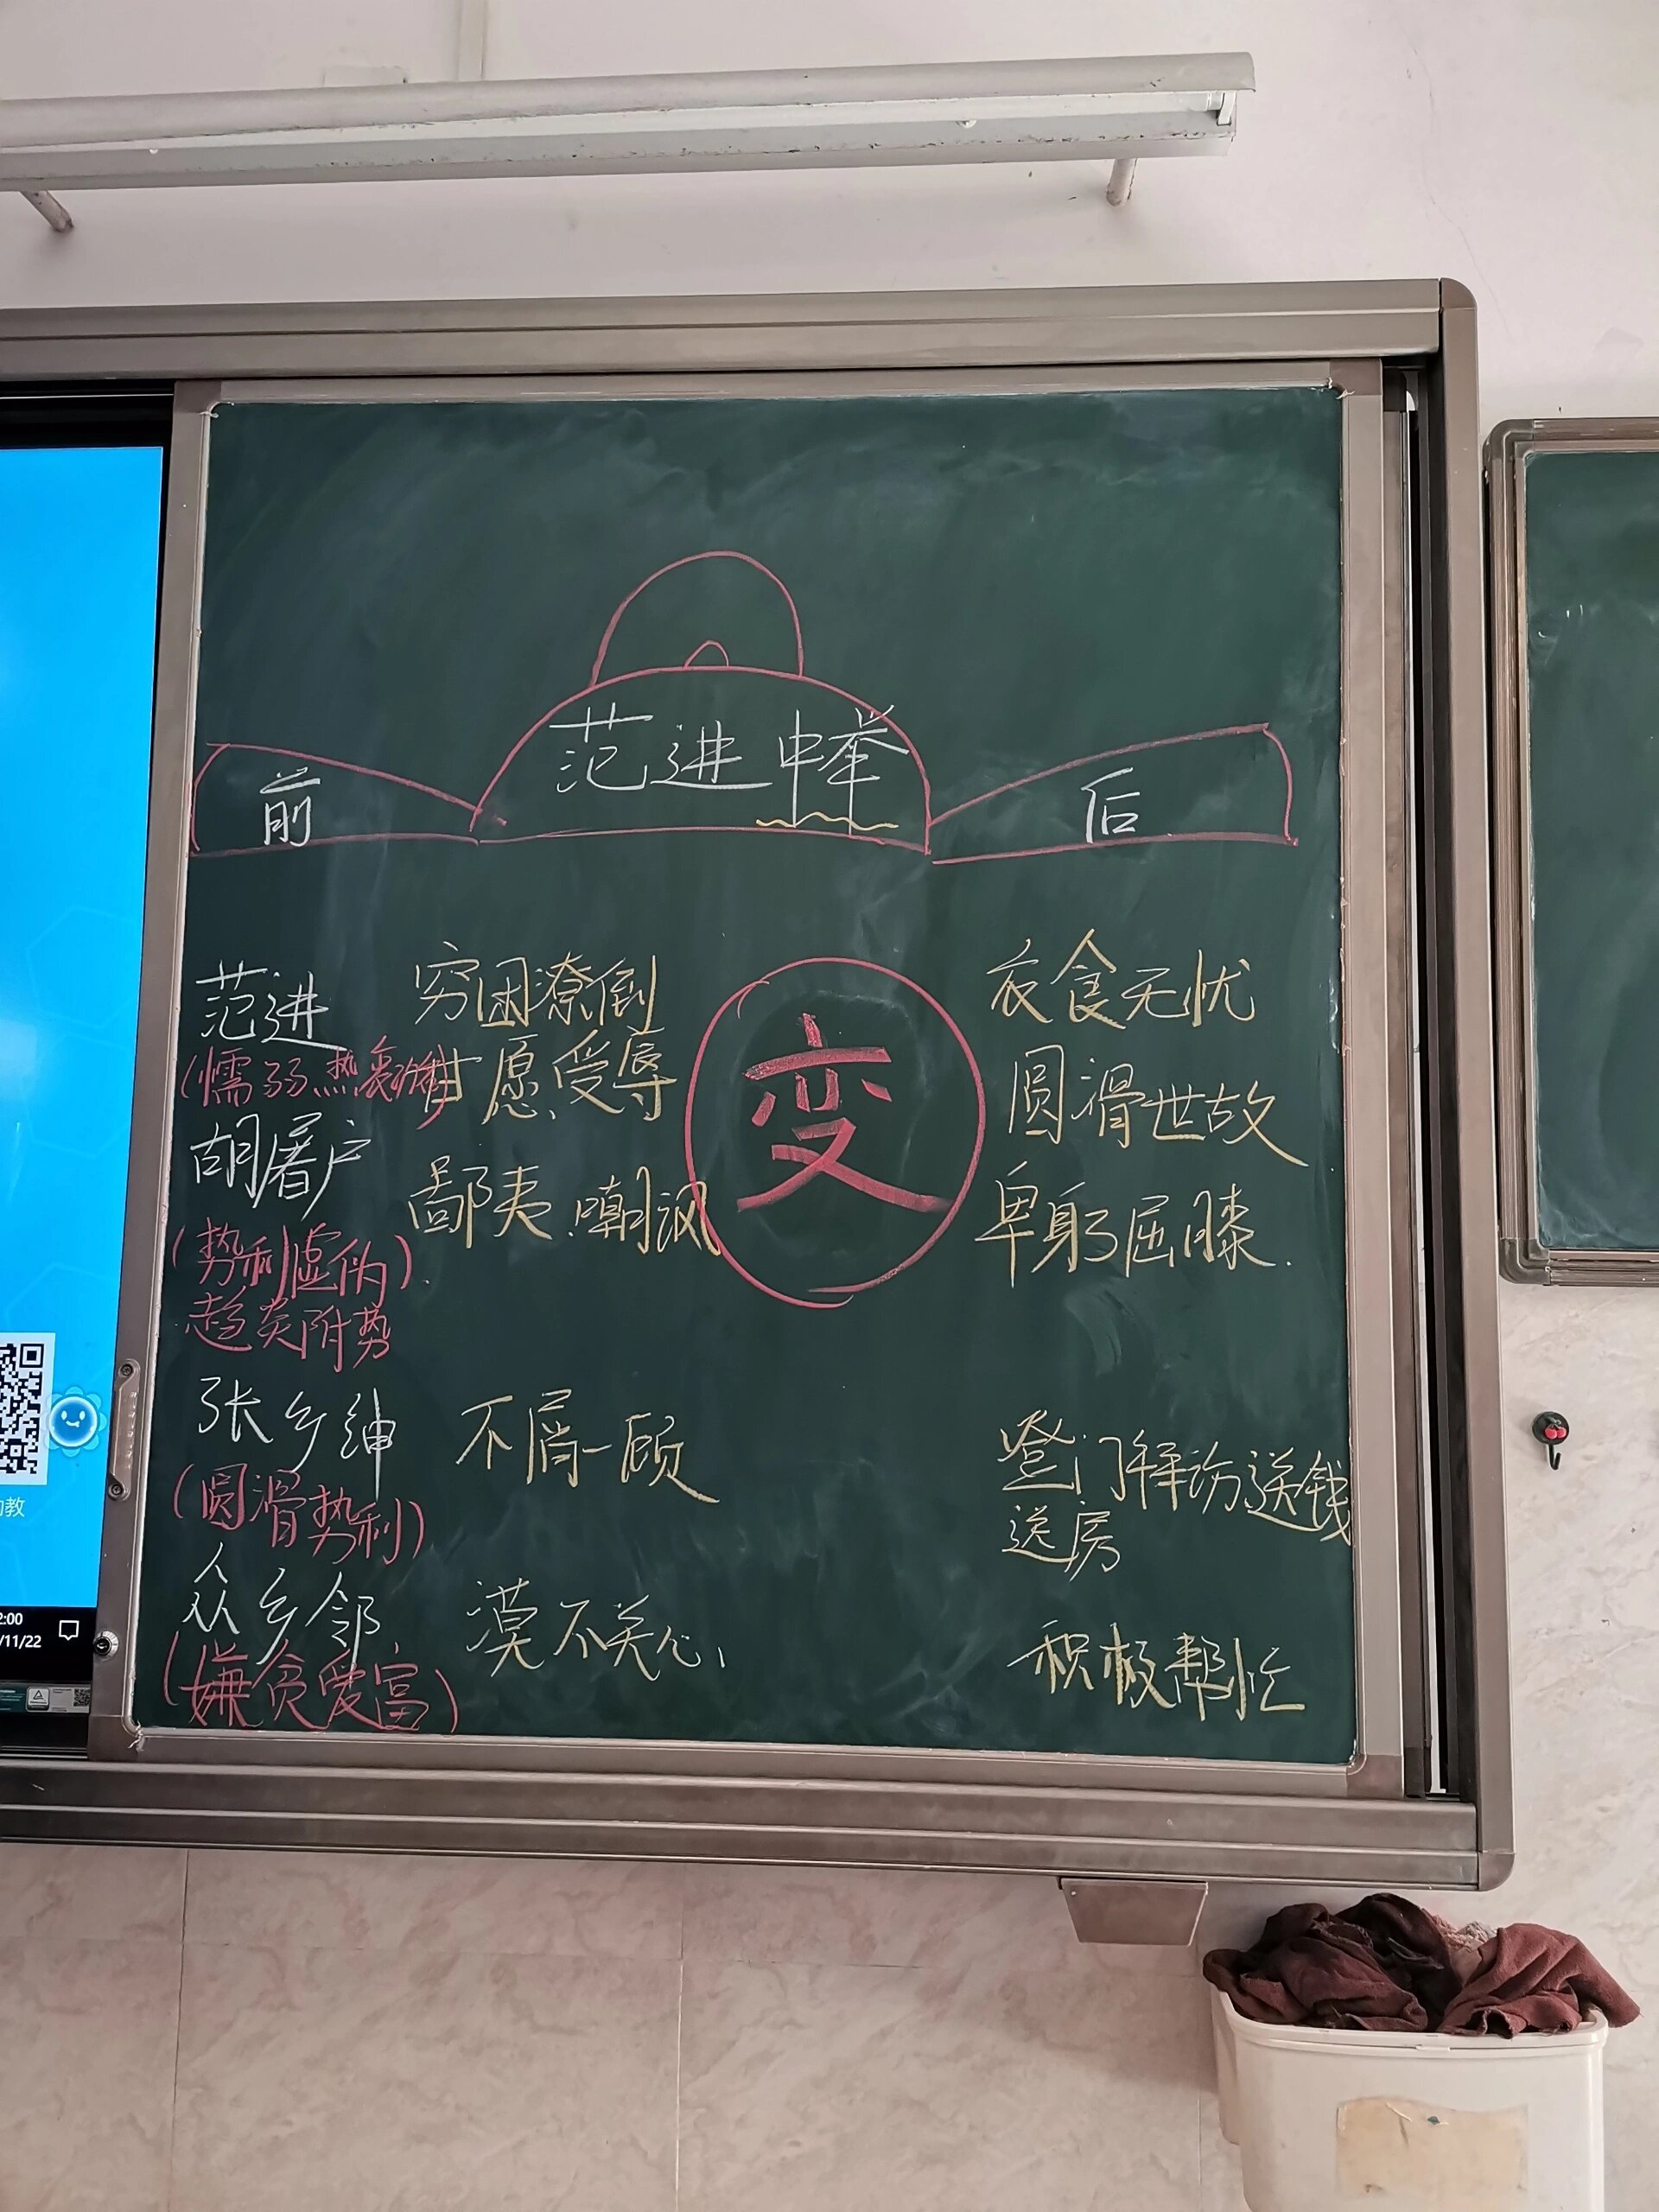 范进中举
前
后
范进
穷困潦倒
衣食无忧
(懦弱热衷功名)
甘愿受辱
变
圆滑世故
胡屠户
鄙夷、嘲讽
卑躬屈膝.
(势利虚伪).
趋炎附势
张乡绅
不屑一顾
登门拜访送钱
送房
(圆滑势利)
众乡邻
漠不关心
积极帮忙
(嫌贫爱富)
2:00
/11/22